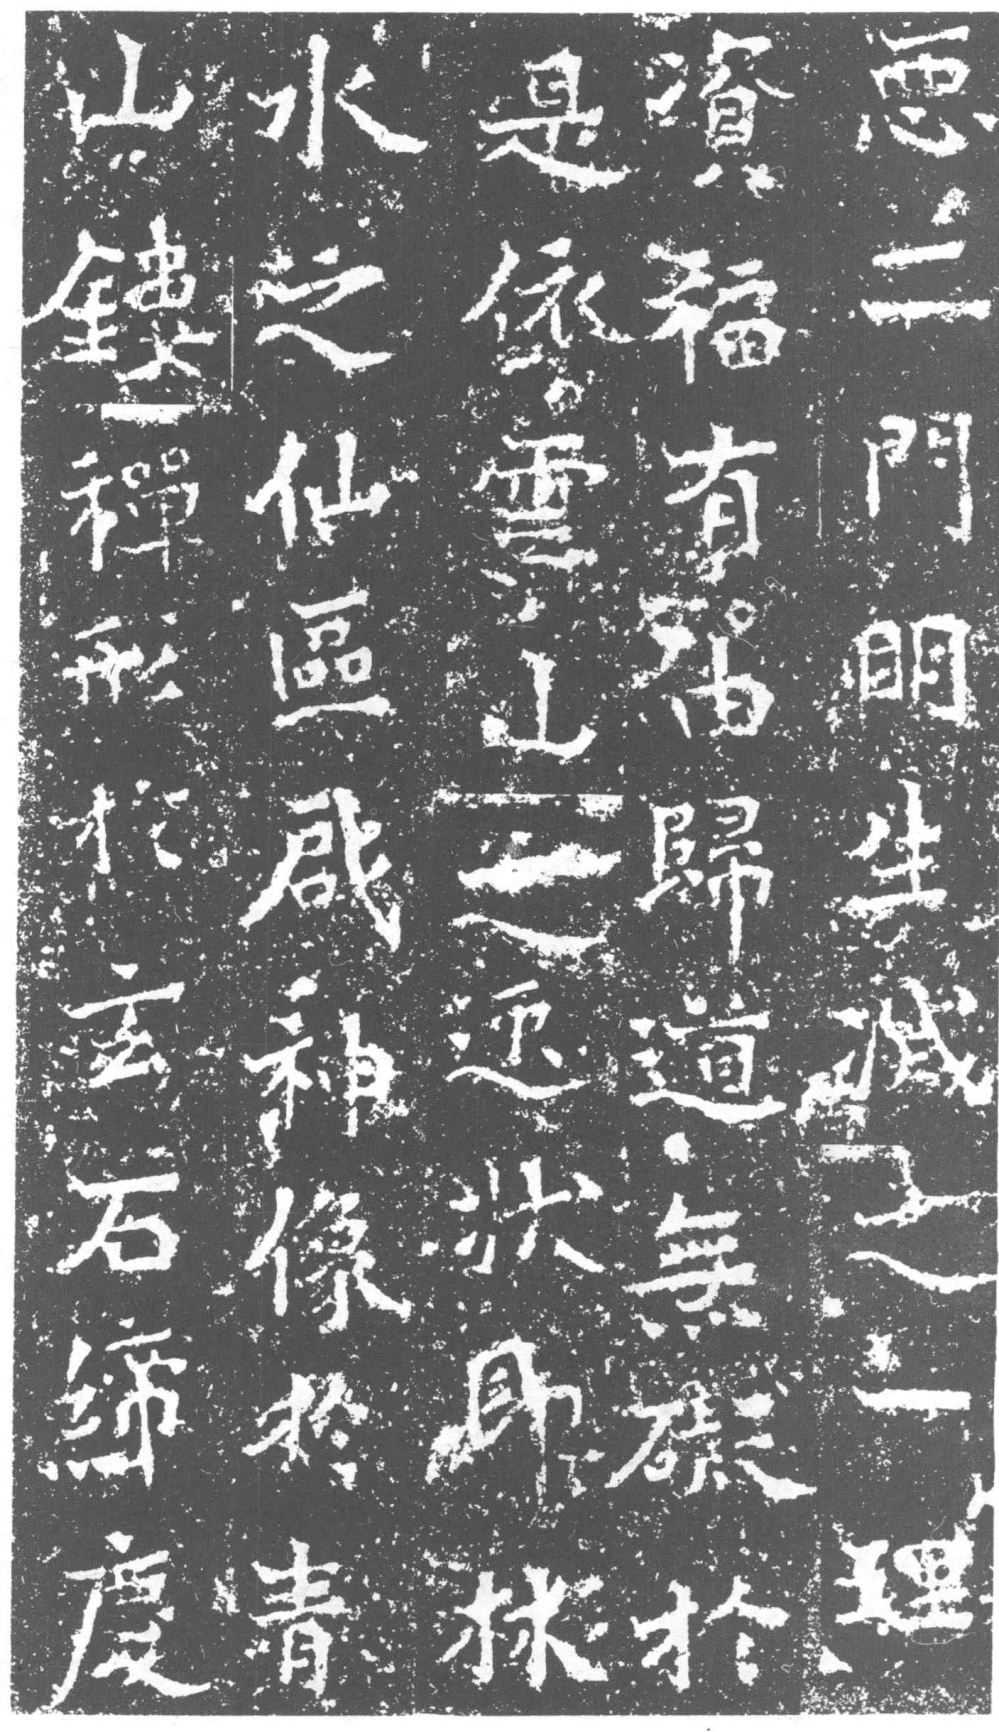 恶二門明生滅之一理
資福有由歸道無礙於
是依雲山之迹狀即林
水之仙區啟神像於青
山鏤禪形於玄石締慶